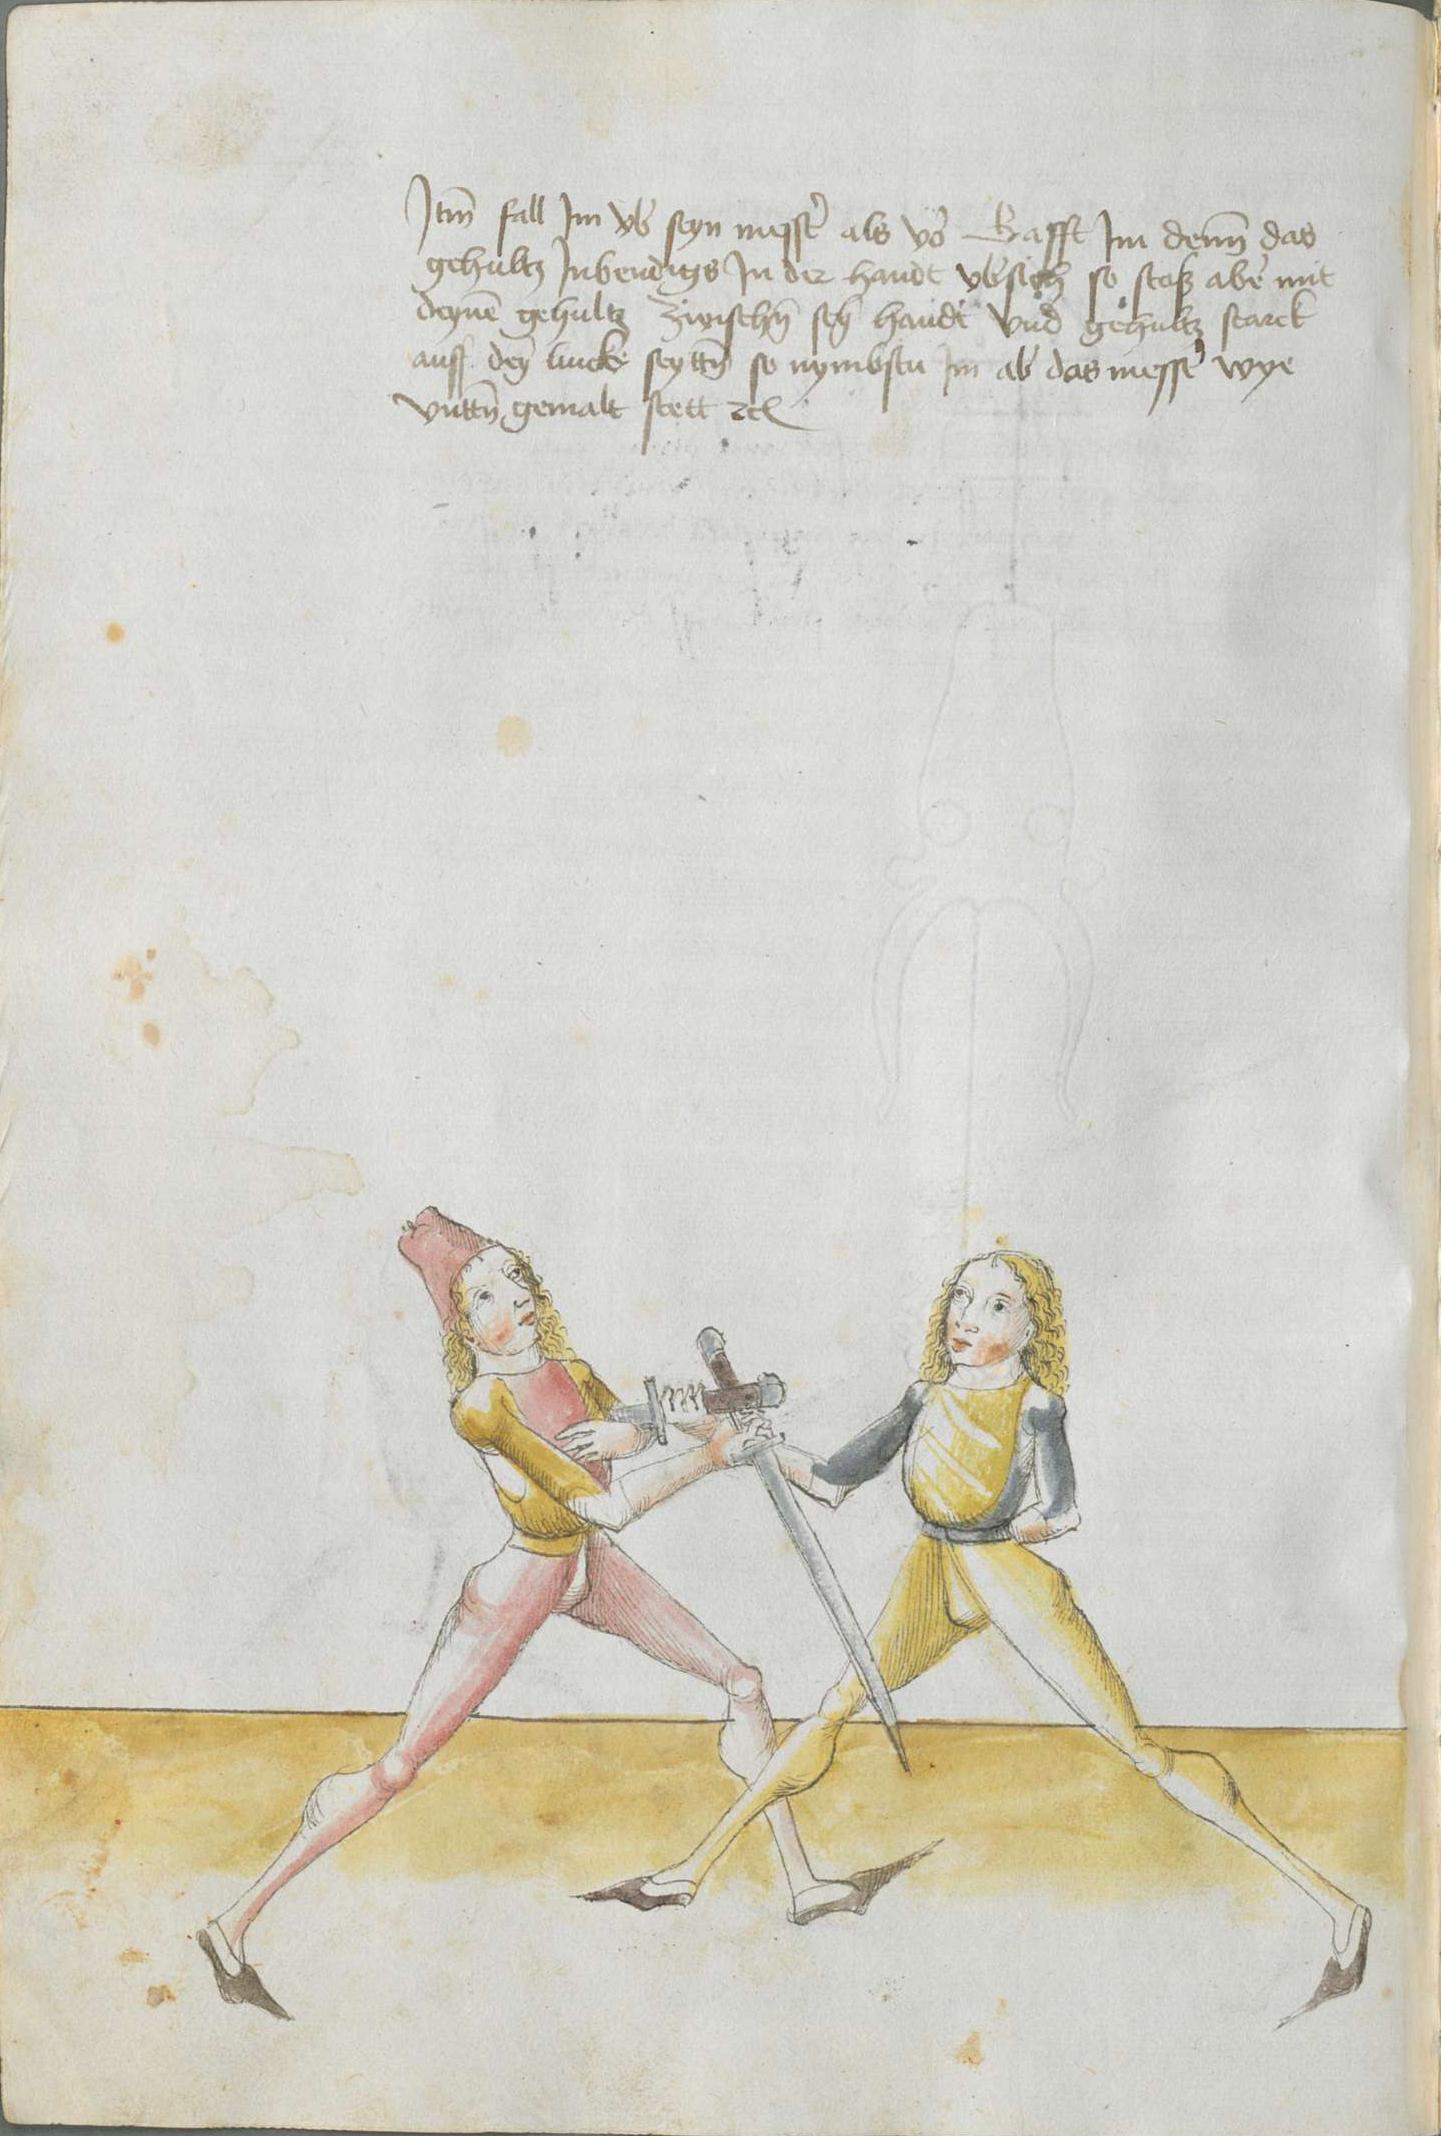 Itm̃ fall Im vb̃ seyn messr̃ als vo᷑ Bafft Im denñ das
gehultz Inbendigs In der handt vb̃sich so stoß aber̃ mit
deynẽ gehultz zwischñ sey̅ handt vnd gehultz starck
auff dey̅ lincke seyttñ so nymbstu Im ab das messer̃ wye
vnttñ gemalt stett ⁊c